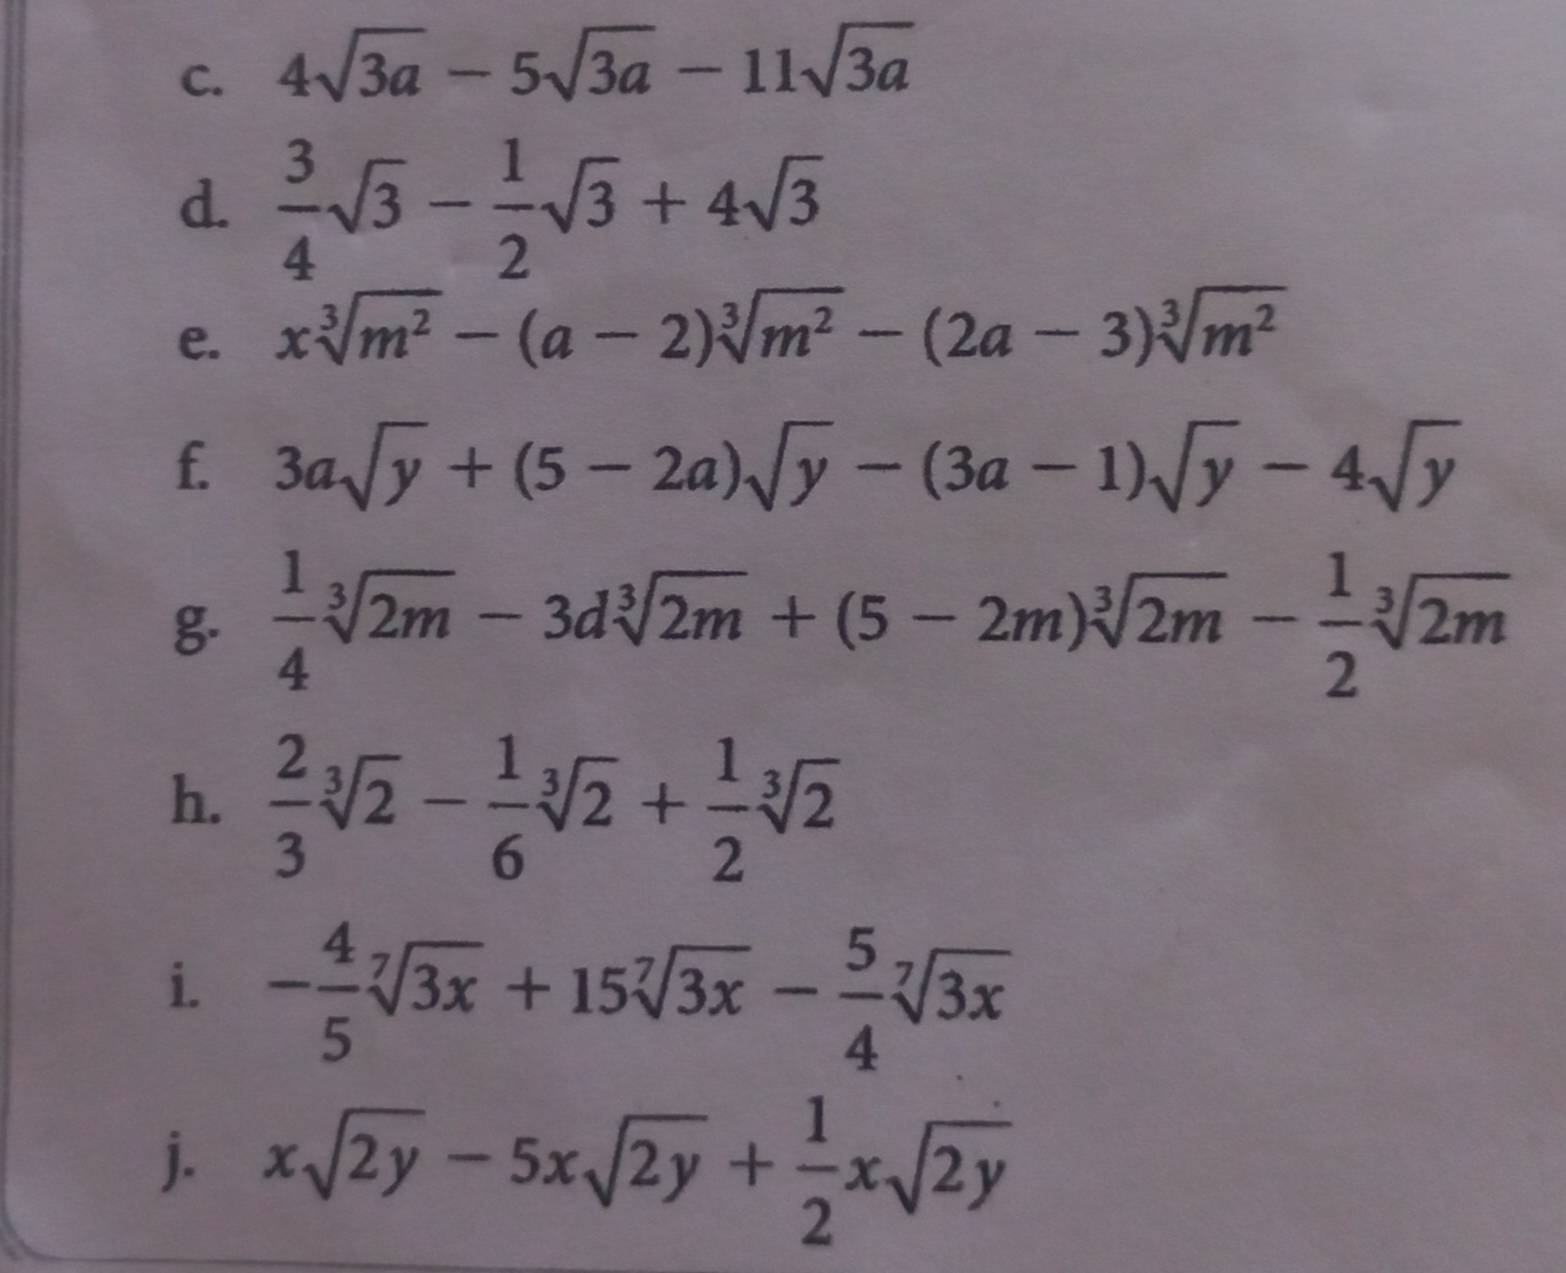 c. 4√(3a) − 5√(3a) − 11√(3a)
d. 3/4 √3 − 1/2 √3 + 4√3
e. x∛(m²) − (a − 2)∛(m²) − (2a − 3)∛(m²)
f. 3a√y + (5 − 2a)√y − (3a − 1)√y − 4√y
g. 1/4 ∛(2m) − 3d∛(2m) + (5 − 2m)∛(2m) − 1/2 ∛(2m)
h. 2/3 ∛2 − 1/6 ∛2 + 1/2 ∛2
i. −4/5 ⁷√(3x) + 15 ⁷√(3x) − 5/4 ⁷√(3x)
j. x√(2y) − 5x√(2y) + 1/2 x√(2y)